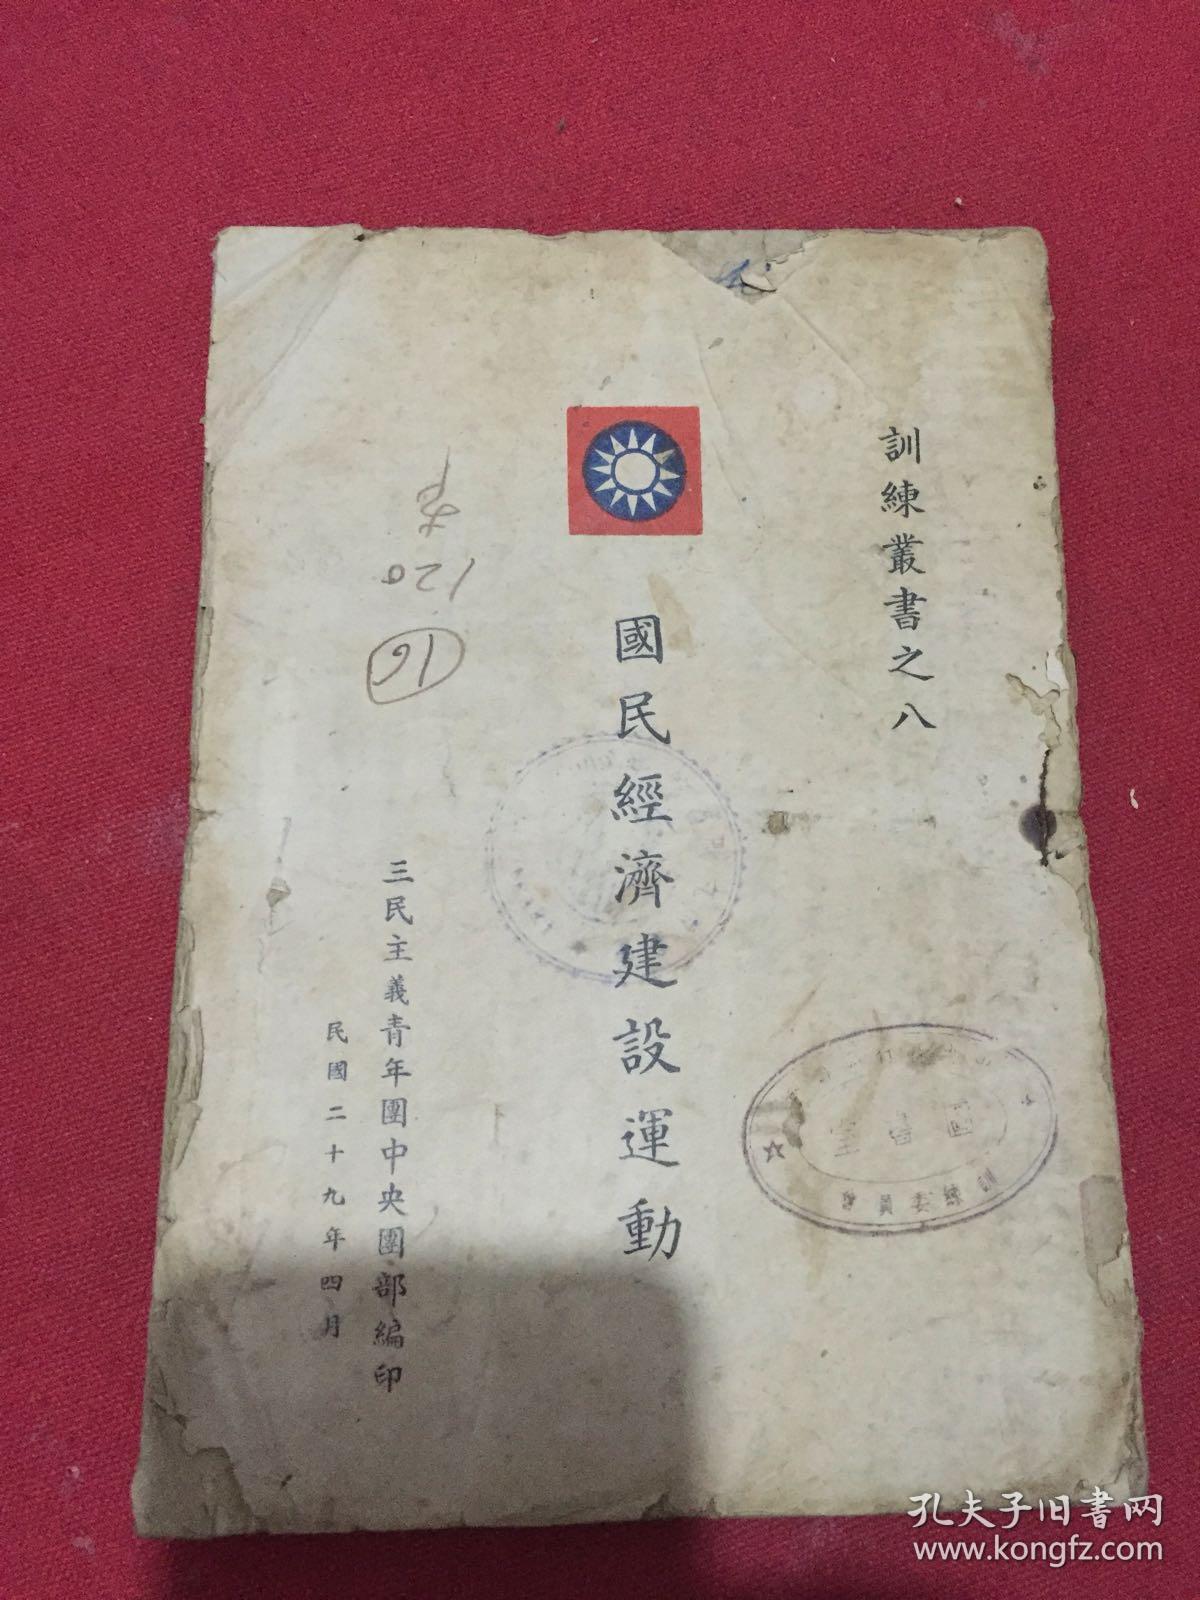 訓練叢書之八
國民經濟建設運動
三民主義青年團中央團部編印
民國二十九年四月
120
16
圖書室
訓練委員會
孔夫子旧书网
www.kongfz.com